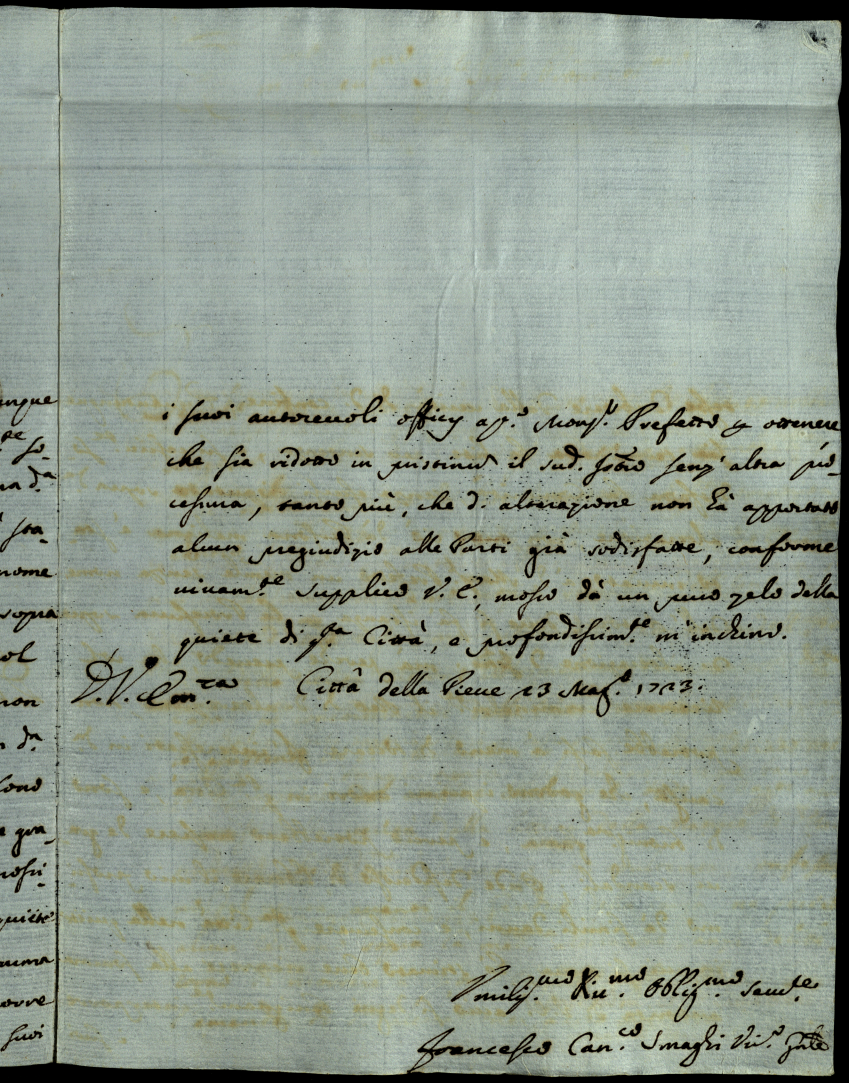 i suoi autorevoli officij ap.o Mons.r Prefetto p ottenere
che sia ridotto in pristinum il sud. senz' altra pro-
cessura, tanto più, che d. alterazione non hà apportato
alcun pregiudizio alle Parti già sodisfatte, conforme
vivam.te supplico V. E., mosso dà un puro zelo della
quiete di q.ta Città, e profondissim.te m'inchino.
D. V. Em.za Città della Pieve 23 Mag.o 1723.
Umiliss.mo Div.mo Obblig.mo Serv.re
Francesco Can.co Smaghi Vic.o Gnle
unque
na d.a
sta-
nome
sopra
ol
non
n d.a
sono
e gra-
quiete
suoi